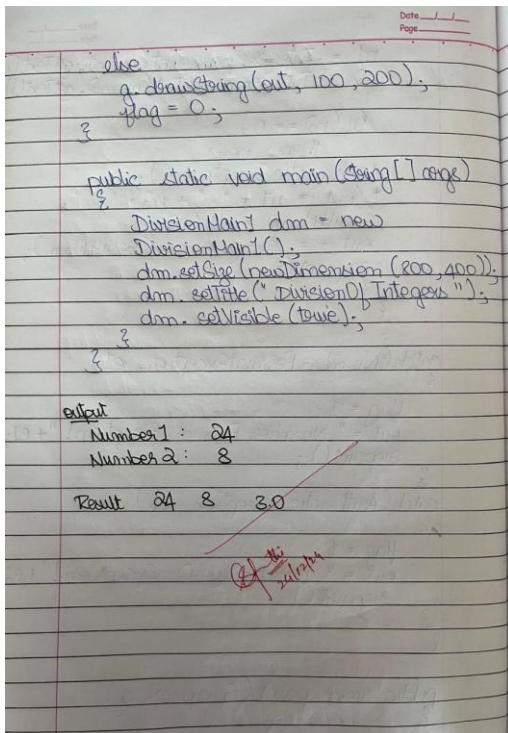 Date __/__/__
Page ______
else
g. drawString (out, 100, 200);
flag = 0;
}
public static void main (String [ ] args)
{
DivisionMain1 dm = new
DivisionMain1 ();
dm. setSize (new Dimension (800, 400));
dm. setTitle (" DivisionOf Integers ");
dm. setVisible (true);
}
}
output
Number 1 : 24
Number 2 : 8
Result 24 8 3.0
24/12/24